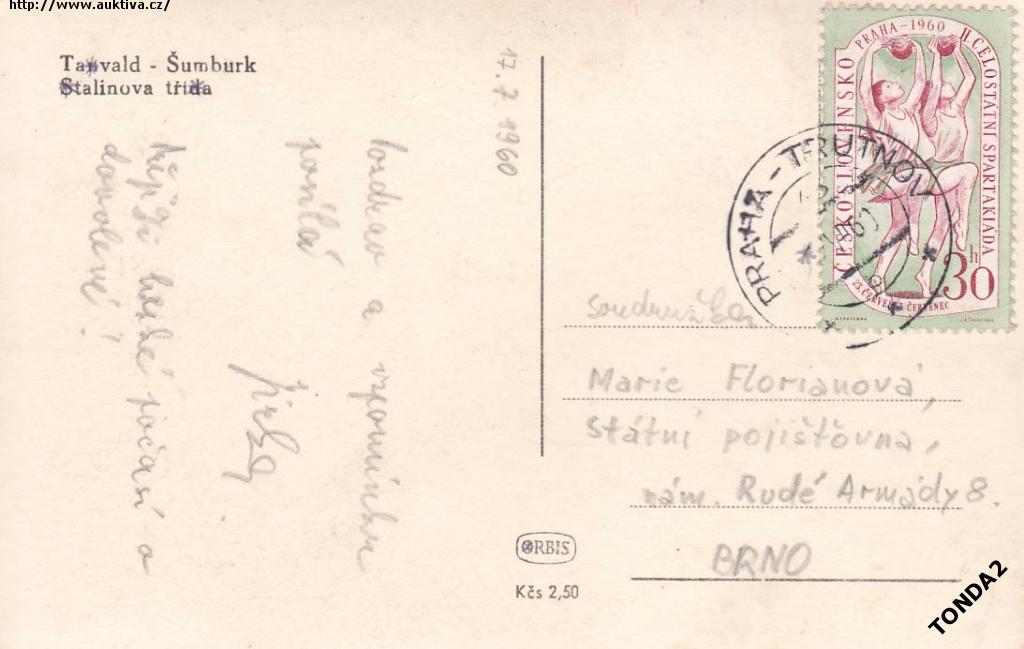 http://www.auktiva.cz/
Tanvald - Šumburk
Stalinova třída
17. 7. 1960
Pozdrav a vzpomínku
posílá
Jirka
hezké počasí a
dovolené!
ČESKOSLOVENSKO
PRAHA-1960
II. CELOSTÁTNÍ SPARTAKIÁDA
23. ČERVEN-3. ČERVENEC
30h
PRAHA - TRUTNOV
Soudružka
Marie Florianová,
Státní pojišťovna,
nám. Rudé Armády 8.
BRNO
ORBIS
Kčs 2,50
TONDA2